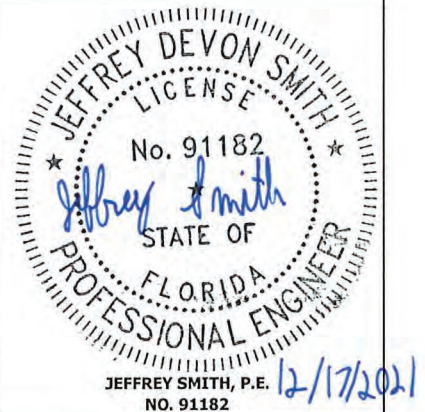 JEFFREY DEVON SMITH
LICENSE
No. 91182
Jeffrey Smith
STATE OF
FLORIDA
PROFESSIONAL ENGINEER
JEFFREY SMITH, P.E. 12/17/2021
NO. 91182